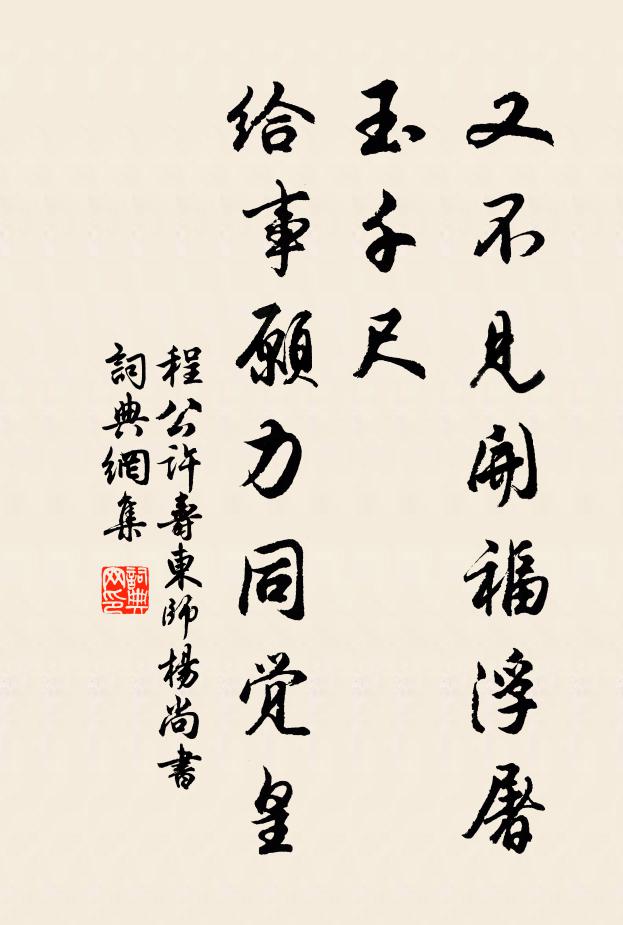 又不見開福浮屠
玉千尺
給事願力同觉皇
程公許壽東師楊尚書
詞典網集
詞典网印